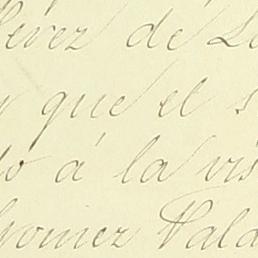 Pérez de Le
y que el s
do á la vis
Gomez Vald